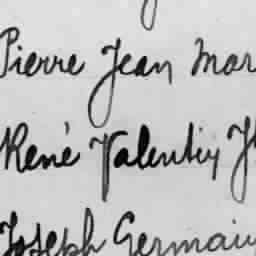 Pierre Jean Mar
René Valentin
Joseph Germain